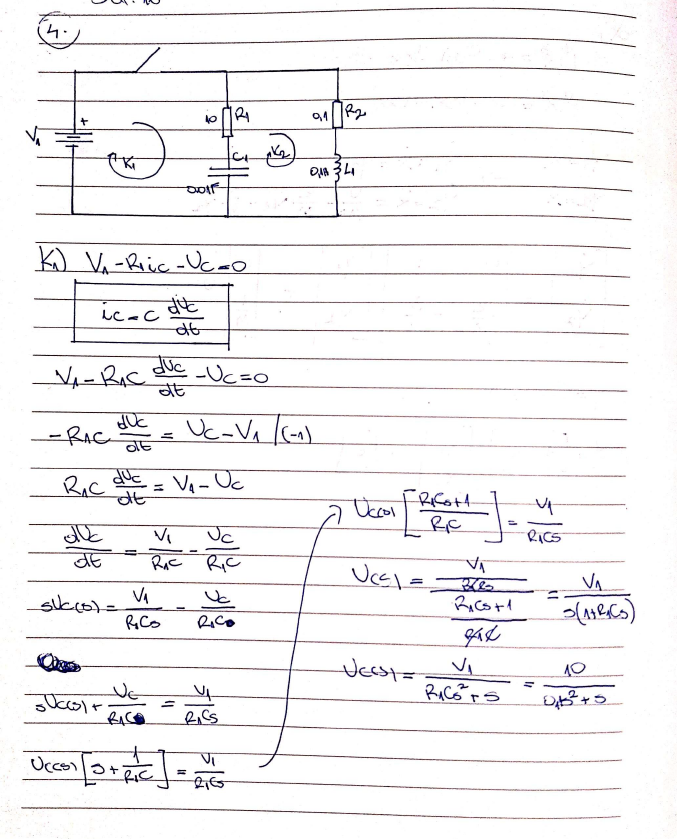 4.
V₁
+
K₁
10 R₁
C₁
0.01F
K₂
0,1 R₂
0,1H L₁
K₁) V₁ - R₁ic - Uc = 0
ic = C dUc/dt
V₁ - R₁C dUc/dt - Uc = 0
-R₁C dUc/dt = Uc - V₁ /(-1)
R₁C dUc/dt = V₁ - Uc
dUc/dt = V₁/R₁C - Uc/R₁C
sUc(s) = V₁/R₁Cs - Uc/R₁C
sUc(s) + Uc/R₁C = V₁/R₁Cs
Uc(s) [s + 1/R₁C] = V₁/R₁Cs
Uc(s) [R₁Cs+1/R₁C] = V₁/R₁Cs
Uc(s) = V₁/R₁Cs / R₁Cs+1/R₁C = V₁/s(1+R₁Cs)
Uc(s) = V₁/R₁Cs²+s = 10/0,1s²+s